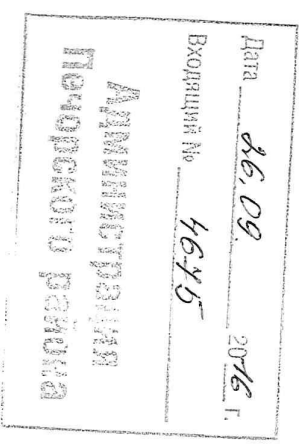 Администрация
Печорского района
Входящий № 4645
Дата 26.09. 2016 г.